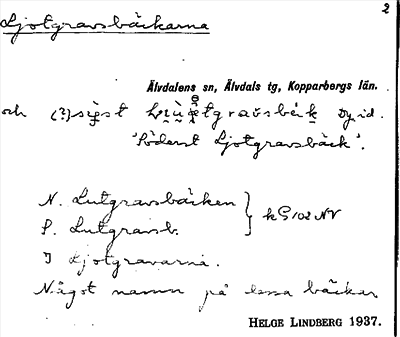 Ljotgravsbäckarna
2
Älvdalens sn, Älvdals tg, Kopparbergs län.
och
"Söderst Ljotgravsbäck".
N. Lutgravsbäcken
S. Lutgravsb.
102 NV
I Ljotgravarna.
Något namn på dessa bäckar
HELGE LINDBERG 1937.